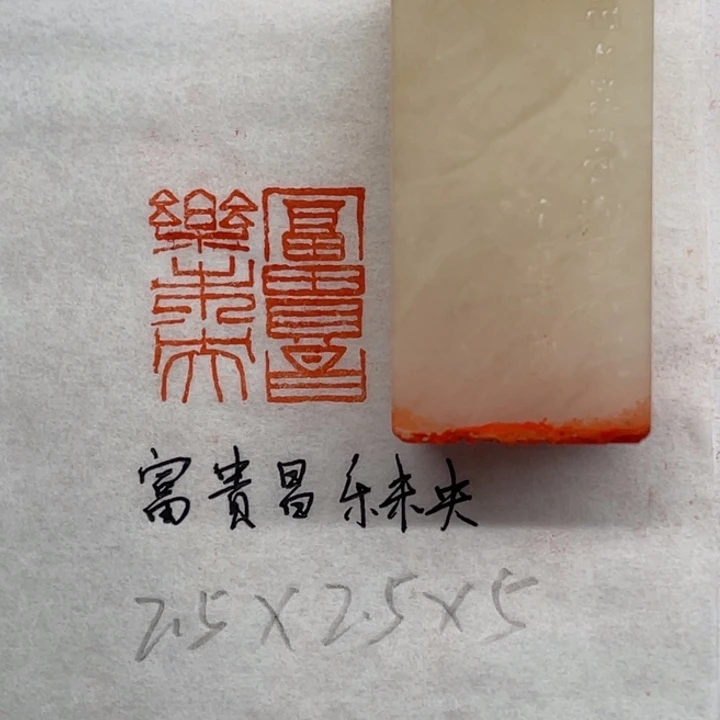 富貴昌
樂未央
富貴昌乐未央
2.5X2.5X5